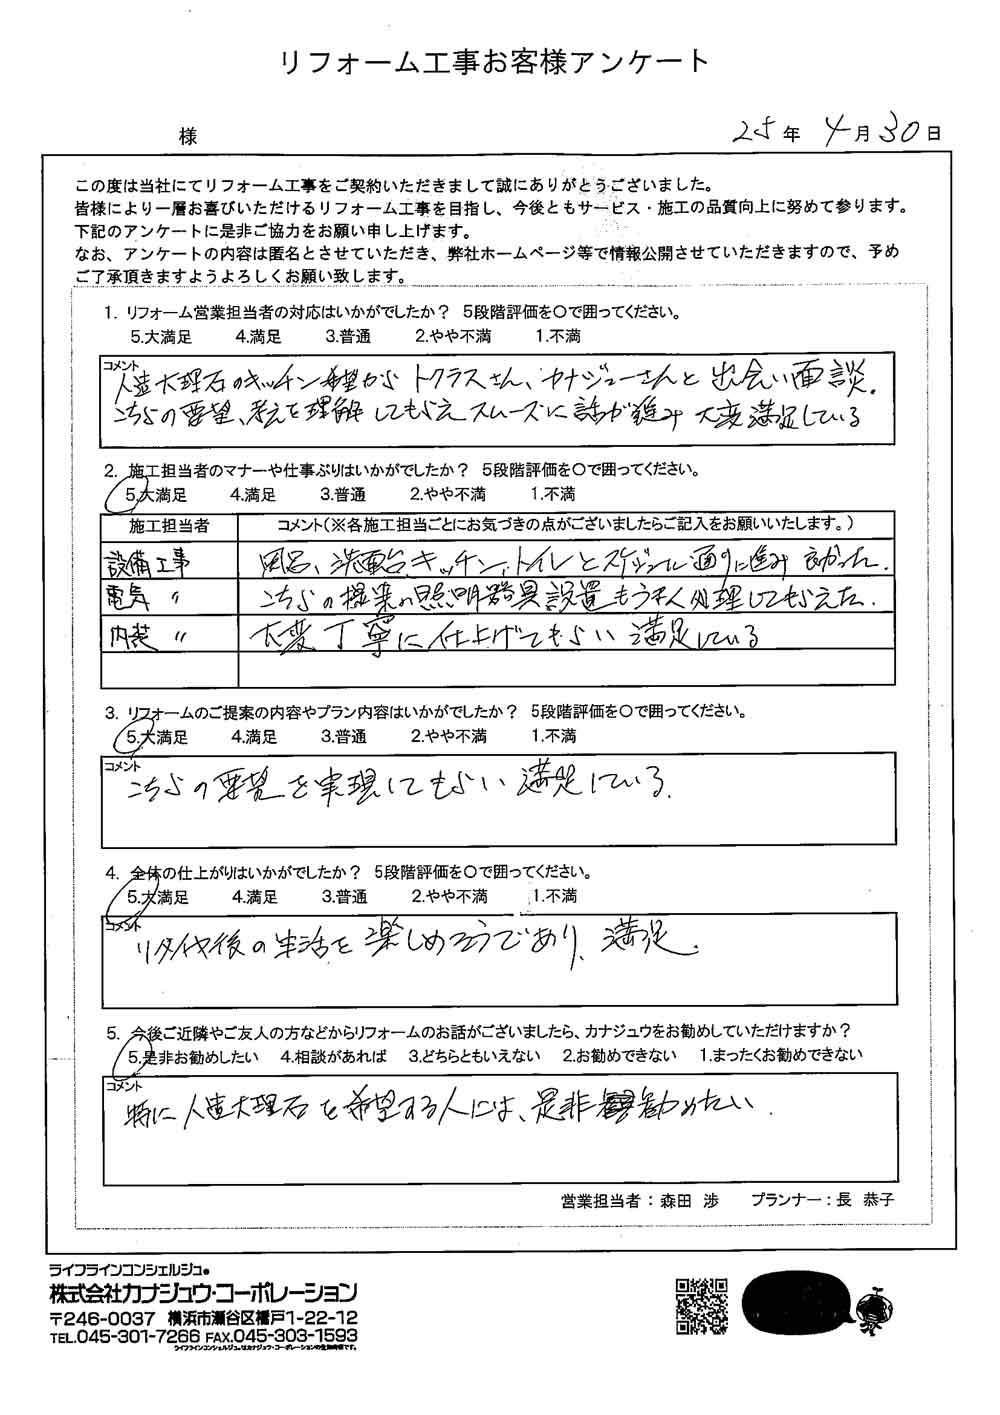 リフォーム工事お客様アンケート
様 25年 4月 30日
この度は当社にてリフォーム工事をご契約いただきまして誠にありがとうございました。
皆様により一層お喜びいただけるリフォーム工事を目指し、今後ともサービス・施工の品質向上に努めて参ります。
下記のアンケートに是非ご協力をお願い申し上げます。
なお、アンケートの内容は匿名とさせていただき、弊社ホームページ等で情報公開させていただきますので、予め
ご了承頂きますようよろしくお願い致します。
1. リフォーム営業担当者の対応はいかがでしたか? 5段階評価を〇で囲ってください。
5.大満足 4.満足 3.普通 2.やや不満 1.不満
コメント
人造大理石のキッチン希望から トクラスさん、カナジューさんと 出会い面談.
こちらの要望、考えを理解してもらえ スムーズに話が進み 大変満足している
2. 施工担当者のマナーや仕事ぶりはいかがでしたか? 5段階評価を〇で囲ってください。
5.大満足 4.満足 3.普通 2.やや不満 1.不満
施工担当者 コメント(※各施工担当ごとにお気づきの点がございましたらご記入をお願いいたします。)
設備工事 風呂、洗面台、キッチン、トイレとスケジュール通りに進み 良かった.
電気 〃 こちらの提案の照明器具設置もうまく処理してもらえた.
内装 〃 大変丁寧に仕上げてもらい 満足している
3. リフォームのご提案の内容やプラン内容はいかがでしたか? 5段階評価を〇で囲ってください。
5.大満足 4.満足 3.普通 2.やや不満 1.不満
コメント
こちらの要望を実現してもらい 満足している.
4. 全体の仕上がりはいかがでしたか? 5段階評価を〇で囲ってください。
5.大満足 4.満足 3.普通 2.やや不満 1.不満
コメント
リタイヤ後の生活を楽しめそうであり、満足.
5. 今後ご近隣やご友人の方などからリフォームのお話がございましたら、カナジュウをお勧めしていただけますか?
5.是非お勧めしたい 4.相談があれば 3.どちらともいえない 2.お勧めできない 1.まったくお勧めできない
コメント
特に人造大理石を希望する人には、是非勧めたい.
営業担当者:森田 渉 プランナー:長 恭子
ライフラインコンシェルジュ®
株式会社カナジュウ・コーポレーション
〒246-0037 横浜市瀬谷区橋戸1-22-12
TEL.045-301-7266 FAX.045-303-1593
ライフラインコンシェルジュ®はカナジュウ・コーポレーションの登録商標です。